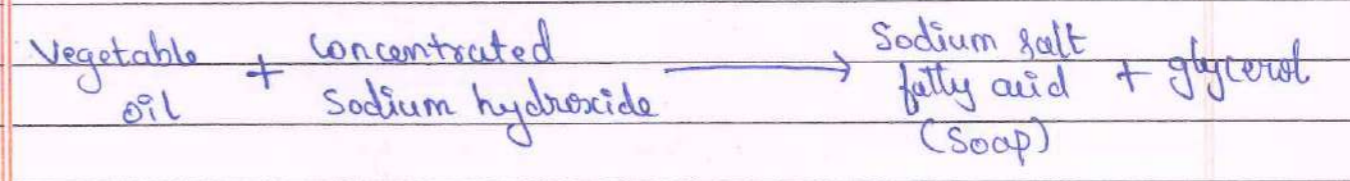 Vegetable oil + Concentrated Sodium hydroxide ⟶ Sodium salt fatty acid (Soap) + glycerol